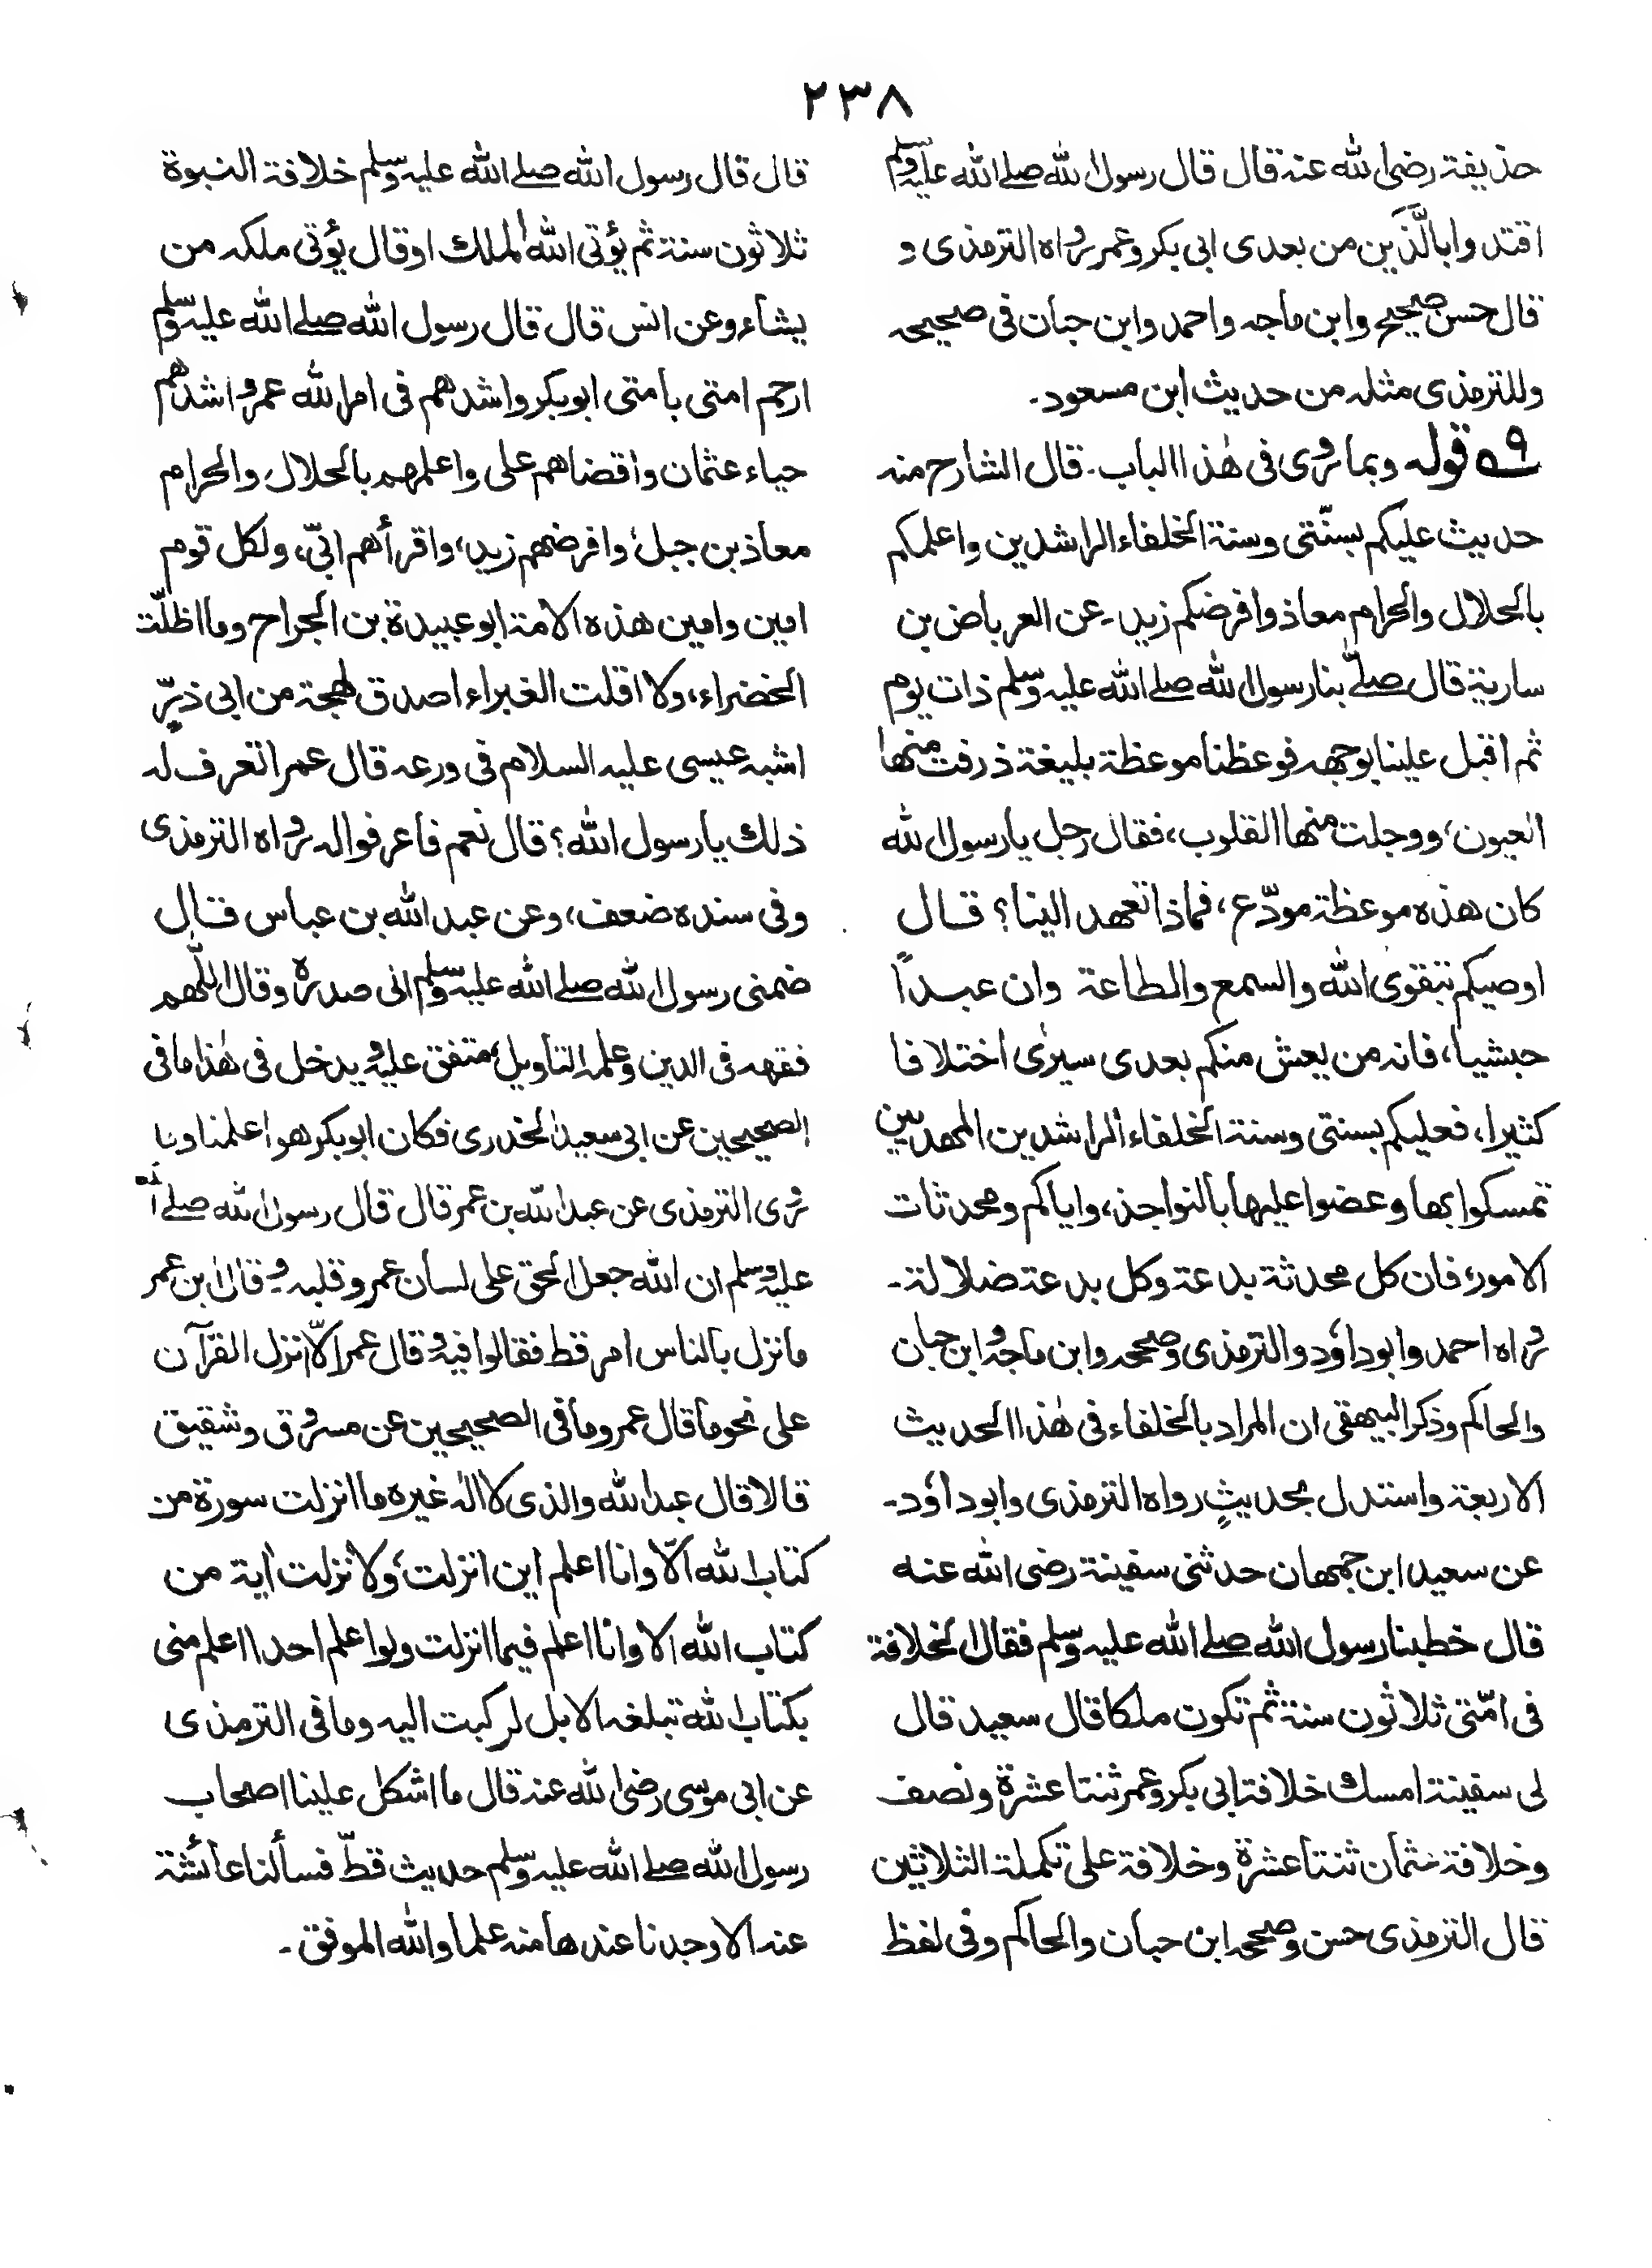 ٢٣٨
حذيفة رضى الله عنه قال قال رسول الله صلے الله عليه وسلم
اقتدوا بالَّذَين من بعدى ابى بكر وعمر رواه الترمذى و
قال حسن صحيح وابن ماجه واحمد وابن حبان فى صحيحه
وللترمذى مثله من حديث ابن مسعود۔
٩ قوله وبما روى فى هٰذا الباب۔ قال الشارح منه
حديث عليكم بسنّتى وسنة الخلفاء الراشدين واعلمكم
بالحلال والحرام معاذ وافرضكم زيد۔ عن العرباض بن
سارية قال صلّے بنا رسول الله صلے الله عليه وسلم ذات يوم
ثم اقبل علينا بوجهه فوعظنا موعظة بليغة ذرفت منها
العيون، ووجلت منها القلوب، فقال رجل يا رسول الله
كان هذه موعظة مودّع، فماذا تعهد الينا؟ قال
اوصيكم بتقوى الله والسمع والطاعة وان عبداً
حبشيا، فانه من يعش منكم بعدى سيرىٰ اختلافا
كثيرا، فعليكم بسنتى وسنة الخلفاء الراشدين المهديين
تمسكوا بها وعضوا عليها بالنواجذ، واياكم ومحدثات
الامور، فان كل محدثة بدعة وكل بدعة ضلالة۔
رواه احمد وابوداؤد والترمذى وصححه وابن ماجه وابن حبان
والحاكم وذكر البيهقى ان المراد بالخلفاء فى هٰذا الحديث
الاربعة واستدل بحديثٍ رواه الترمذى وابوداؤد۔
عن سعيد ابن جمهان حدثنى سفينة رضى الله عنه
قال خطبنا رسول الله صلے الله عليه وسلم فقال الخلافة
فى امّتى ثلاثون سنة ثم تكون ملكا قال سعيد قال
لى سفينة امسك خلافة ابى بكر وعمر ثنتا عشرة ونصف
وخلافة عثمان ثنتا عشرة وخلافة على تكملة الثلاثين
قال الترمذى حسن وصححه ابن حبان والحاكم وفى لفظ
قال قال رسول الله صلے الله عليه وسلم خلافة النبوة
ثلاثون سنة ثم يؤتى الله الملك او قال يؤتى ملكه من
يشاء وعن انس قال قال رسول الله صلے الله عليه وسلم
ارحم امتى بامتى ابوبكر واشدهم فى امر الله عمر واشدهم
حياء عثمان واقضاهم على واعلمهم بالحلال والحرام
معاذ بن جبل، وافرضهم زيد، واقرأهم ابىّ، ولكل قوم
امين وامين هذه الامة ابوعبيدة بن الجراح وما اظلّت
الخضراء، ولا اقلت الغبراء اصدق لهجة من ابى ذرٍّ
اشبه عيسى عليه السلام فى ورعه قال عمر اتعرف له
ذلك يا رسول الله؟ قال نعم فاعرفوا له رواه الترمذى
وفى سنده ضعف، وعن عبد الله بن عباس قال
ضمنى رسول الله صلے الله عليه وسلم الى صدره وقال اللّٰهم
فقهه فى الدين وعلمه التاويل، متفق عليه ويدخل فى هٰذا ما فى
الصحيحين عن ابى سعيد الخدرى فكان ابوبكر هو اعلمنا وبما
روى الترمذى عن عبد الله بن عمر قال قال رسول الله صلے الله
عليه وسلم ان الله جعل الحق على لسان عمر وقلبه۔ وقال ابن عمر
ما نزل بالناس امر قط فقالوا فيه وقال عمر الّا نزل القرآن
على نحو ما قال عمر وما فى الصحيحين عن مسروق وشقيق
قالا قال عبد الله والذى لا اله غيره ما انزلت سورة من
كتاب الله الّا وانا اعلم اين انزلت، ولا نزلت اية من
كتاب الله الا وانا اعلم فيما انزلت ولو اعلم احدا اعلم منى
بكتاب الله تبلغه الابل لركبت اليه وما فى الترمذى
عن ابى موسى رضى الله عنه قال ما اشكل علينا اصحاب
رسول الله صلے الله عليه وسلم حديث قطّ فسألنا عائشة
عنه الا وجدنا عندها منه علما والله الموفق۔